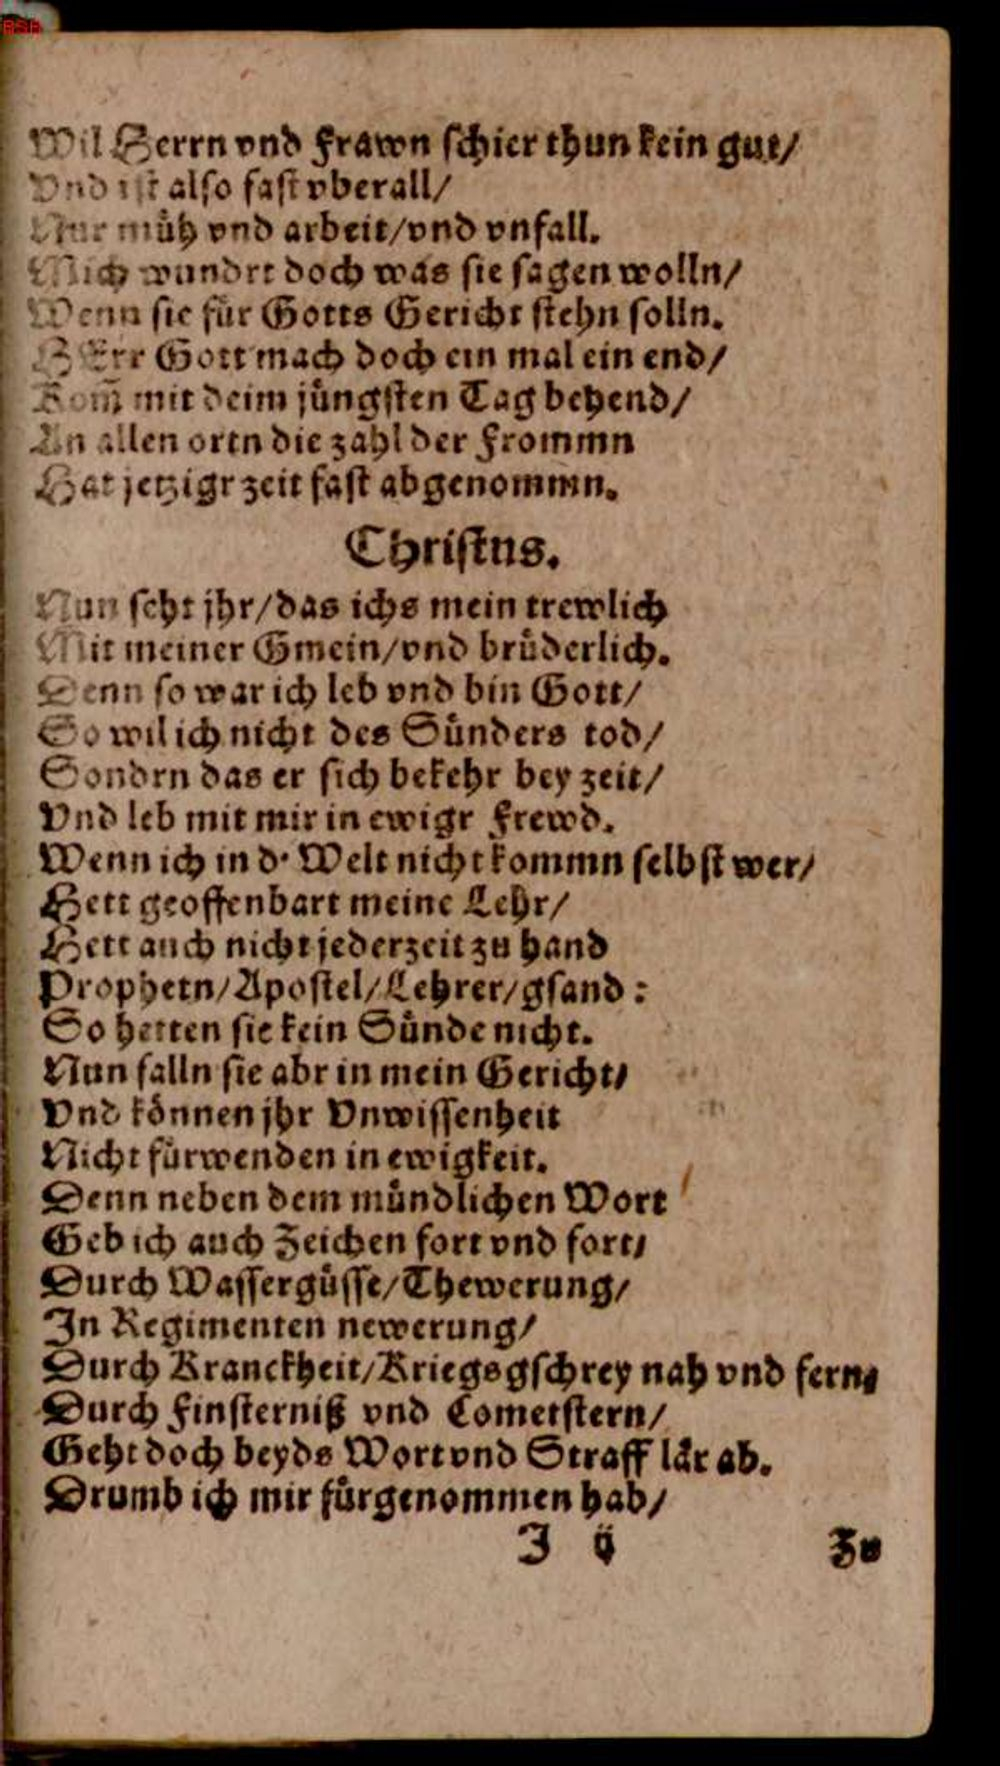 Wil Herrn vnd Frawn schier thun kein gut/
Vnd ist also fast vberall/
Nur müh vnd arbeit/vnd vnfall.
Mich wundrt doch was sie sagen wolln/
Wenn sie für Gotts Gericht stehn solln.
HErr Gott mach doch ein mal ein end/
Kom̃ mit deim jüngsten Tag behend/
An allen ortn die zahl der Frommn
Hat jetzigr zeit fast abgenommn.
Christus.
Nun seht jhr/das ichs mein trewlich
Mit meiner Gmein/vnd brüderlich.
Denn so war ich leb vnd bin Gott/
So wil ich nicht des Sünders tod/
Sondrn das er sich bekehr bey zeit/
Vnd leb mit mir in ewigr Frewd.
Wenn ich in d. Welt nicht kommn selbst wer/
Hett geoffenbart meine Lehr/
Hett auch nicht jederzeit zu hand
Prophetn/Apostel/Lehrer/gsand:
So hetten sie kein Sünde nicht.
Nun falln sie abr in mein Gericht/
Vnd können jhr Vnwissenheit
Nicht fürwenden in ewigkeit.
Denn neben dem mündlichen Wort
Geb ich auch Zeichen fort vnd fort/
Durch Wassergüsse/Thewerung/
In Regimenten newerung/
Durch Kranckheit/Kriegsgschrey nah vnd fern/
Durch Finsterniß vnd Cometstern/
Geht doch beyds Wort vnd Straff lär ab.
Drumb ich mir fürgenommen hab/
J ij
Zu
RSB